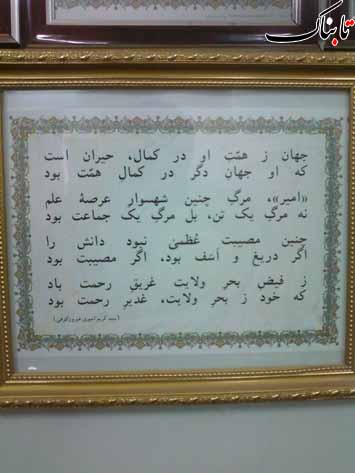 تابناک
جهان ز همّتِ او در کمال، حیران است
که او جهانِ دگر در کمالِ همّت بود
«امیر»، مرگِ چنین شهسوارِ عرصهٔ علم
نه مرگِ یک تن، بل مرگِ یک جماعت بود
چنین مصیبتِ عُظمیٰ نبود دانش را
اگر دریغ و اَسَف بود، اگر مصیبت بود
ز فیضِ بحرِ ولایت غریقِ رحمت باد
که خود ز بحرِ ولایت، غدیرِ رحمت بود
(سید کریم امیری فیروزکوهی)